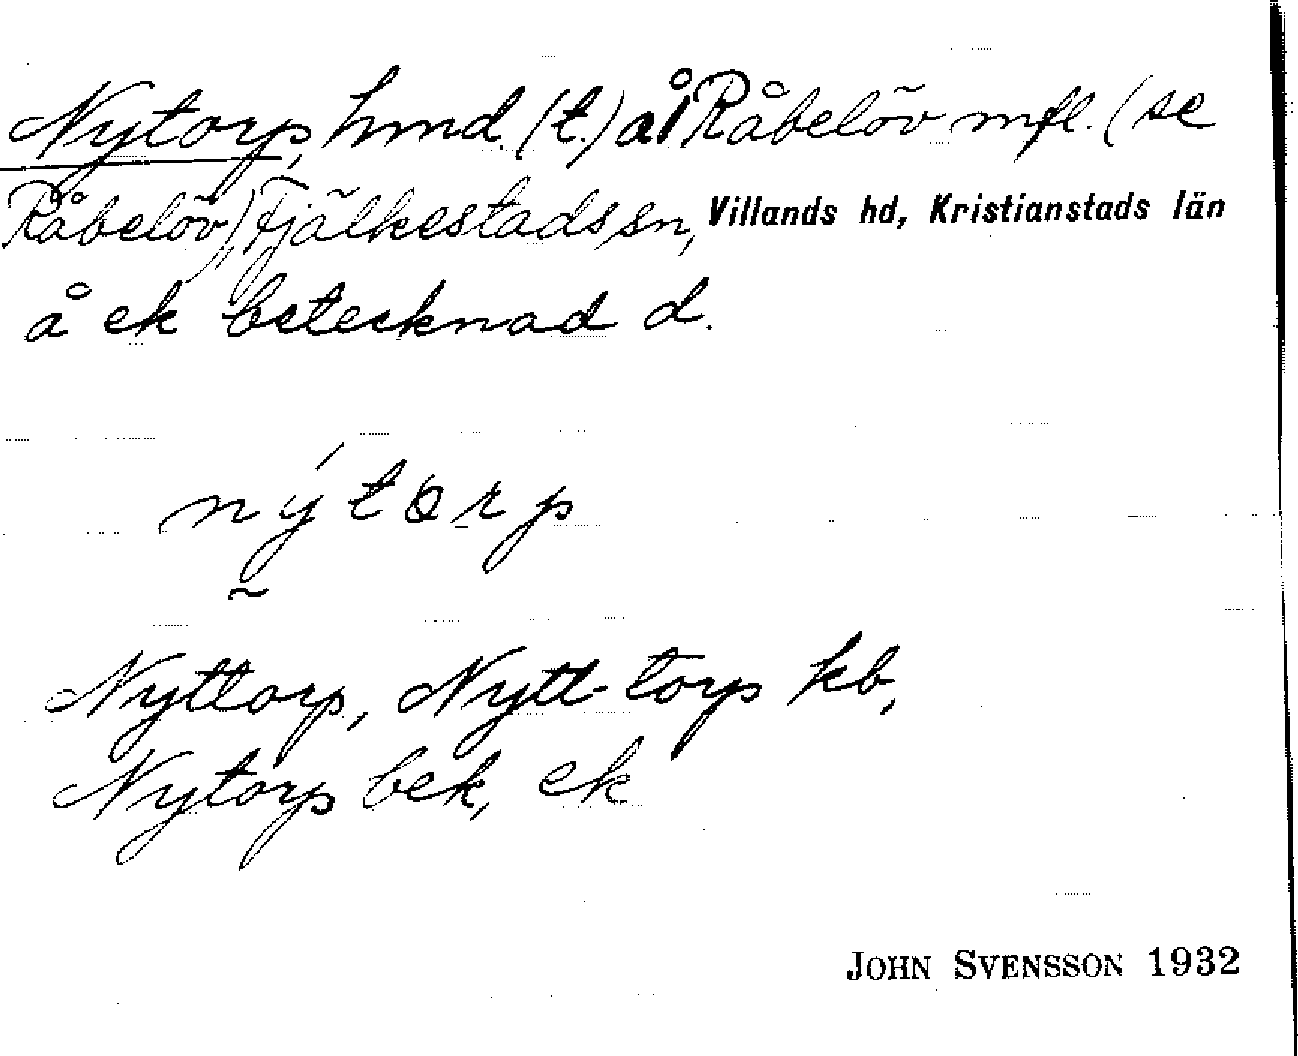 Nytorp, hmd. (t.) å 1 Råbelöv mfl. (se
Råbelöv), Fjälkestads sn, Villands hd, Kristianstads län
å ek betecknad d.
nýtorp
Nyttorp, Nytt torp kb,
Nytorp bek, ek
JOHN SVENSSON 1932